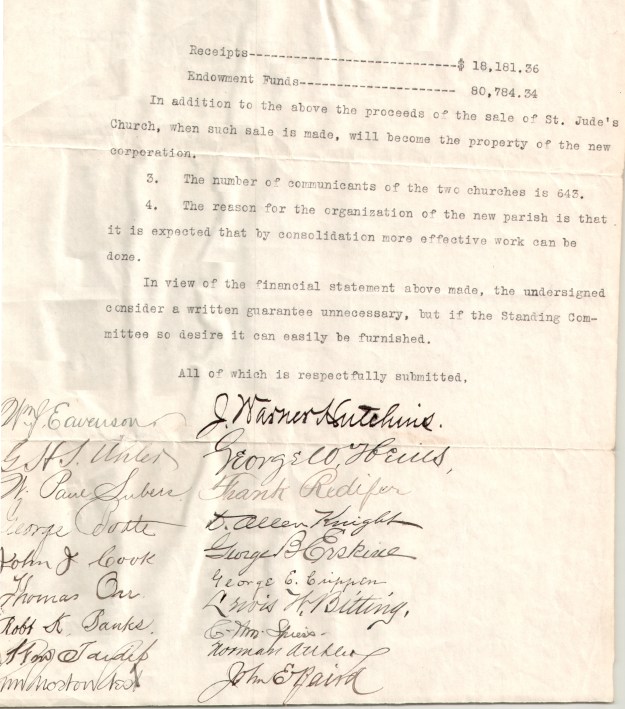 Receipts---------------------------$ 18,181.36
Endowment Funds-------------------- 80,784.34
In addition to the above the proceeds of the sale of St. Jude's
Church, when such sale is made, will become the property of the new
corporation.
3. The number of communicants of the two churches is 643.
4. The reason for the organization of the new parish is that
it is expected that by consolidation more effective work can be
done.
In view of the financial statement above made, the undersigned
consider a written guarantee unnecessary, but if the Standing Com-
mittee so desire it can easily be furnished.
All of which is respectfully submitted,
Wm J. Eavenson J. Warner Hutchins.
G. H. S. George W. Heiss,
W. Paul Frank Redifer
George D. Allen Knight
John J Cook George B Erskine
Thomas Orr. George C. Crippen
Robt K. Banks. Lewis H. Bitting,
E. Wm. Spiess.
Norman
John E Baird